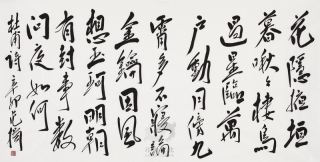 花隱掖垣
暮啾々棲鳥
過星臨萬
戶動月傍九
霄多不寢聽
金鑰因風
想玉珂明朝
有封事數
問夜如何
杜甫詩 辛卯